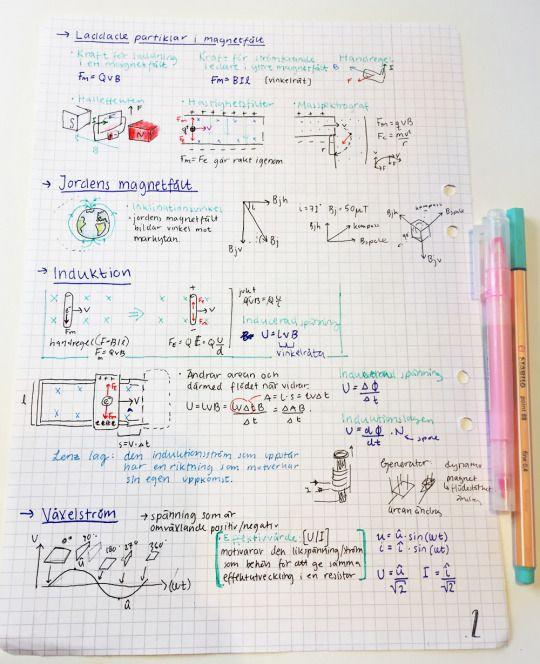 → Laddade partiklar i magnetfält
• Kraft för laddning i en magnetfält
Fm = QvB
Kraft för strömförande ledare i yttre magnetfält
Fm = BIl [vinkelrät]
Handregel
B
I
F
• Halleffekten
S
N
F
B
• Hastighetsfilter
Fm
v
Fe
Fm = Fe går rakt igenom
• Masspektrograf
v
r
Fm = qvB
Fc = mv²/r
→ Jordens magnetfält
• Inklinationsvinkel
• jordens magnetfält
bildar vinkel mot
markytan.
i
Bjh
Bjv
Bj
i = 71° Bj = 50μT
Bjh
kompass
Bspole
kompass
Bspole
Bjh
Bjv
→ Induktion
v
Fm
handregel (F=BIl)
Fm = QvB
⇒
+
Fe
v
Fm
-
Fe = Q E = Q U/d
jvkt
QvB = Q U/l
Inducerad spänning
U = lvB
vinkelräta
l
Fe
v
Fm
s = v·Δt
• Ändrar arean och
därmed flödet när vidrar.
A = l·s = lvΔt
U = lvB = lvΔtB/Δt = ΔAB/Δt
Inducerad spänning
U = ΔΦ/Δt
Induktionslagen
U = dΦ/dt · N
spole
Lenz lag: den induktionsström som uppstår
har en riktning som motverkar
sin egen uppkomst.
I
Generator:
arean ändras
dynamo
magnet
↳ flödestäthet
ändras
→ Växelström
→ spänning som är
omväxlande positiv/negativ
V
0° 90° 180° 270° 360°
û
û
(wt)
Effektivvärde: [U/I]
motsvarar den likspänning/ström
som behövs för att ge samma
effektutveckling i en resistor
u = û·sin(wt)
i = î·sin(wt)
U = û/√2 I = î/√2
1
STABILO
point 88
fine 0.4